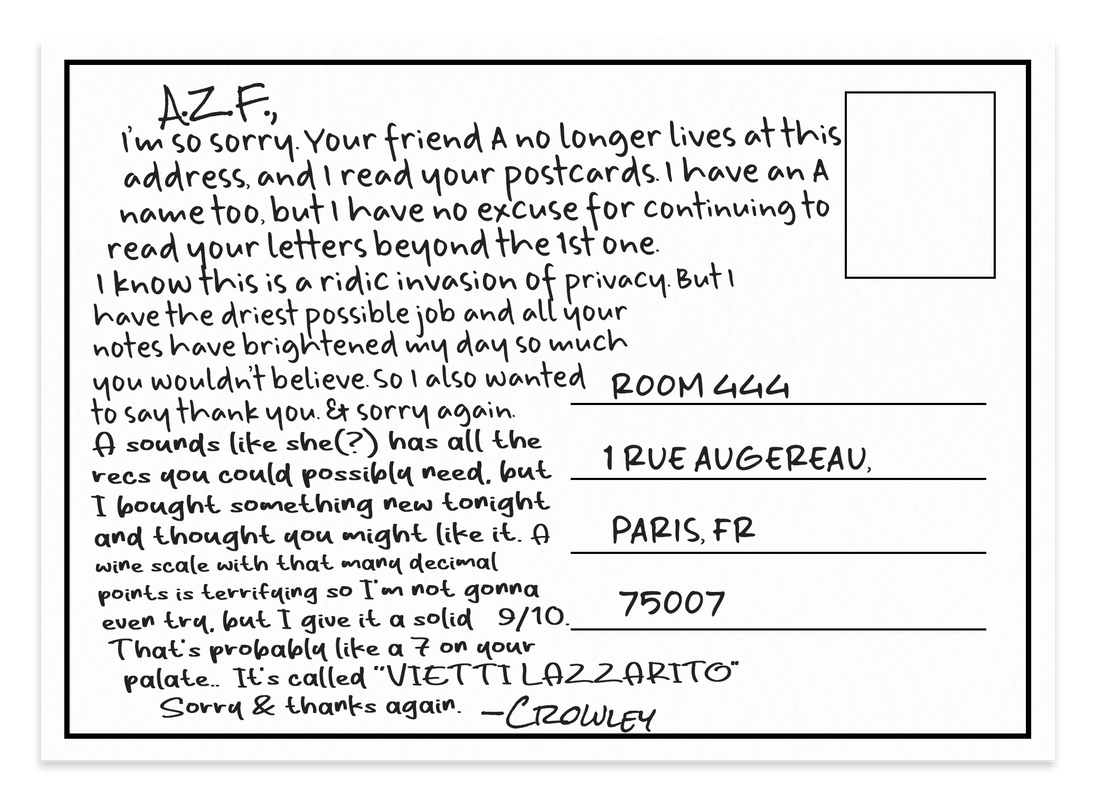 A.Z.F.,
I'm so sorry. Your friend A no longer lives at this
address, and I read your postcards. I have an A
name too, but I have no excuse for continuing to
read your letters beyond the 1st one.
I know this is a ridic invasion of privacy. But I
have the driest possible job and all your
notes have brightened my day so much
you wouldn't believe. So I also wanted
to say thank you. & sorry again.
A sounds like she(?) has all the
recs you could possibly need, but
I bought something new tonight
and thought you might like it. A
wine scale with that many decimal
points is terrifying so I'm not gonna
even try, but I give it a solid 9/10.
That's probably like a 7 on your
palate.. It's called "VIETTI LAZZARITO"
Sorry & thanks again. –CROWLEY
ROOM 444
1 RUE AUGEREAU,
PARIS, FR
75007